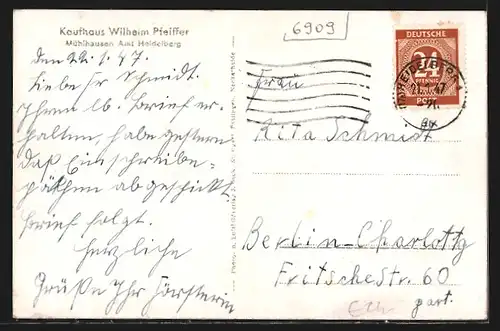 Kaufhaus Wilhelm Pfeiffer
Mühlhausen Amt Heidelberg
den 22.1.47.
Liebe Fr Schmidt.
Ihren lb. Brief er-
halten, habe gestern
daß Einschreibe-
päkchen abgeschickt
Brief folgt.
Herzliche
Grüße Ihr Försterin
6909
DEUTSCHE
24
PFENNIG
POST
HEIDELBERG
47
Frau
Rita Schmidt
Berlin-Charlottg
Fritschestr. 60
part.